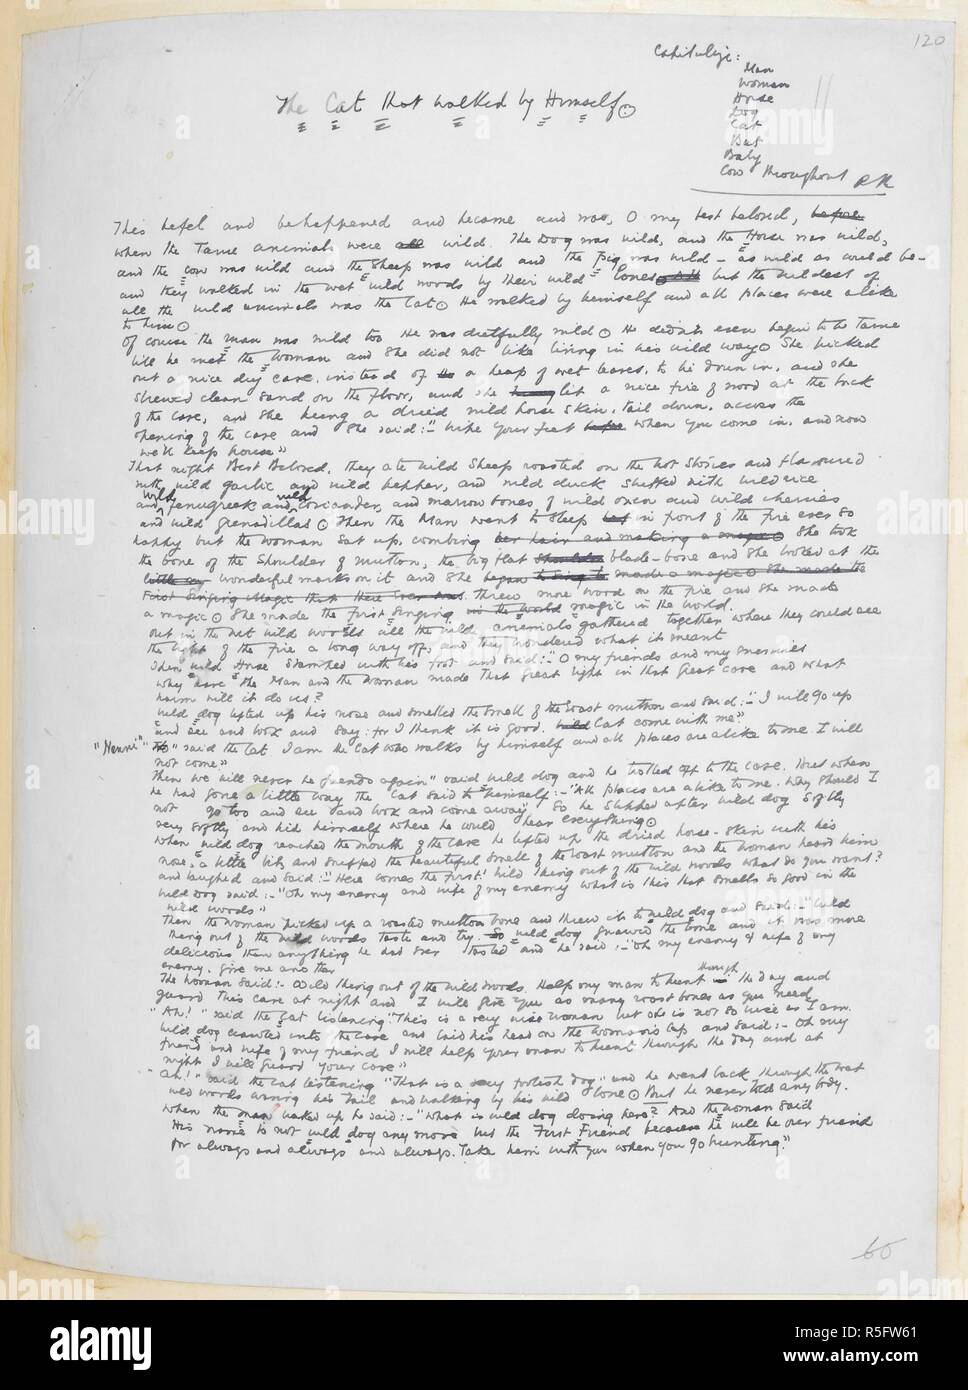 120
Capitalize:
Man
Woman
Horse
Dog
Cat
Bat
Baby
Cow throughout RK
The Cat that walked by Himself.
This befel and behappened and became and was, O my best beloved, before
when the Tame animals were all wild. The Dog was wild, and the Horse was wild,
and the cow was wild and the Sheep was wild and the pig was wild - as wild as could be -
and they walked in the wet wild woods by their wild lones. but the wildest of
all the wild animals was the Cat. He walked by himself and all places were alike
to him.
Of course the man was wild too He was dretfully wild. He didn't even begin to be tame
till he met the woman and she did not like living in his wild ways. She picked
out a nice dry cave, instead of a heap of wet leaves, to lie down in, and she
strewed clean sand on the floor, and she hung lit a nice fire of wood at the back
of the cave, and she hung a dried wild horse skin, tail down, across the
opening of the cave and she said:- "Wipe your feet before when you come in, and now
we'll keep house"
That night Best Beloved, they ate wild sheep roasted on the hot stones and flavoured
with wild garlic and wild pepper, and wild duck stuffed with wild rice
and wild fenugreek and wild coriander, and marrow bones of wild oxen and wild cherries
and wild grenadillas. Then the Man went to sleep in front of the fire ever so
happy but the woman sat up, combing her hair and making a magic. She took
the bone of the shoulder of mutton, the big flat shoulder blade-bone and she looked at the
wonderful marks on it and she began to sing to made a magic. She made the
First Singing Magic that there ever was threw more wood on the fire and she made
a magic. She made the first singing in the world magic in the world.
out in the wet wild woods all the wild animals gathered together where they could see
the light of the fire a long way off, and they wondered what it meant
Then wild Horse stamped with his foot and said:- "O my friends and my enemies
why have the Man and the woman made that great light in that great cave and what
harm will it do us?
wild dog lifted up his nose and smelled the smell of the roast mutton and said:- "I will go up
and see and look and say: for I think it is good. wild Cat come with me"
"Nenni" "No" said the Cat. I am the Cat who walks by himself and all places are alike to me. I will
not come."
Then we will never be friends again" said wild dog and he trotted off to the cave. But when
he had gone a little way the Cat said to himself:- "All places are alike to me. Why should I
not go too and see and look and come away" So he slipped after wild dog softly
very softly and hid himself where he could hear everything.
when wild dog reached the mouth of the cave he lifted up the dried horse-skin with his
nose, a little bit, and sniffed the beautiful smell of the roast mutton and the woman heard him
and laughed and said:- "Here comes the first! wild thing out of the wild woods what do you want?
wild dog said:- "Oh my enemy and wife of my enemy what is this that smells so good in the
wild woods"
Then the woman picked up a roasted mutton bone and threw it to wild dog and said:- "wild
thing out of the wild woods taste and try. So wild dog gnawed the bone and it was more
delicious than anything he had ever tasted and he said:- "Oh my enemy & wife of my
enemy, give me another
The woman said:- Wild thing out of the wild woods. Help my man to hunt in through the day and
guard this cave at night and I will give you as many roast bones as you need
"Ah!" said the Cat listening "This is a very wise woman but she is not so wise as I am.
wild dog crawled into the cave and laid his head on the woman's lap and said:- Oh my
friend and wife of my friend I will help your man to hunt through the day and at
night I will guard your cave"
"Ah!" said the cat listening "That is a very foolish dog" and he went back through the wet
wild woods waving his tail and walking by his wild lone. But he never told anybody.
when the man waked up he said:- "What is wild dog doing here? And the woman said
His name is not wild dog any more but the First Friend because he will be our friend
for always and always and always. Take him with you when you go hunting."
66
alamy
Image ID: R5FW61
www.alamy.com